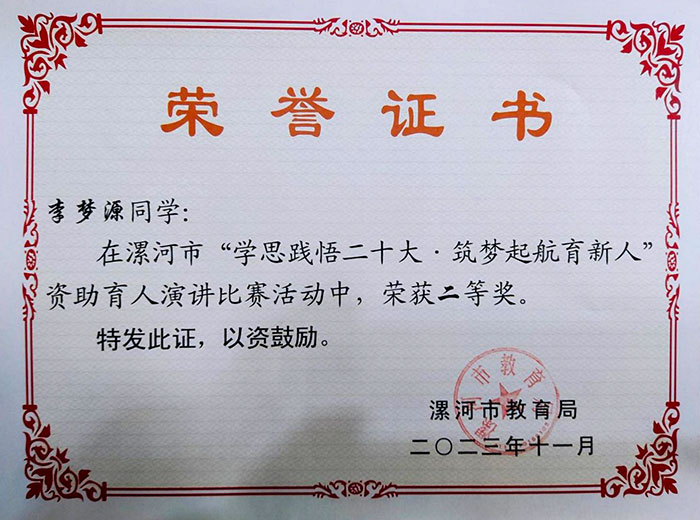 荣誉证书
李梦源同学:
在漯河市“学思践悟二十大·筑梦起航育新人”
资助育人演讲比赛活动中，荣获二等奖。
特发此证，以资鼓励。
漯河市教育局
二〇二三年十一月